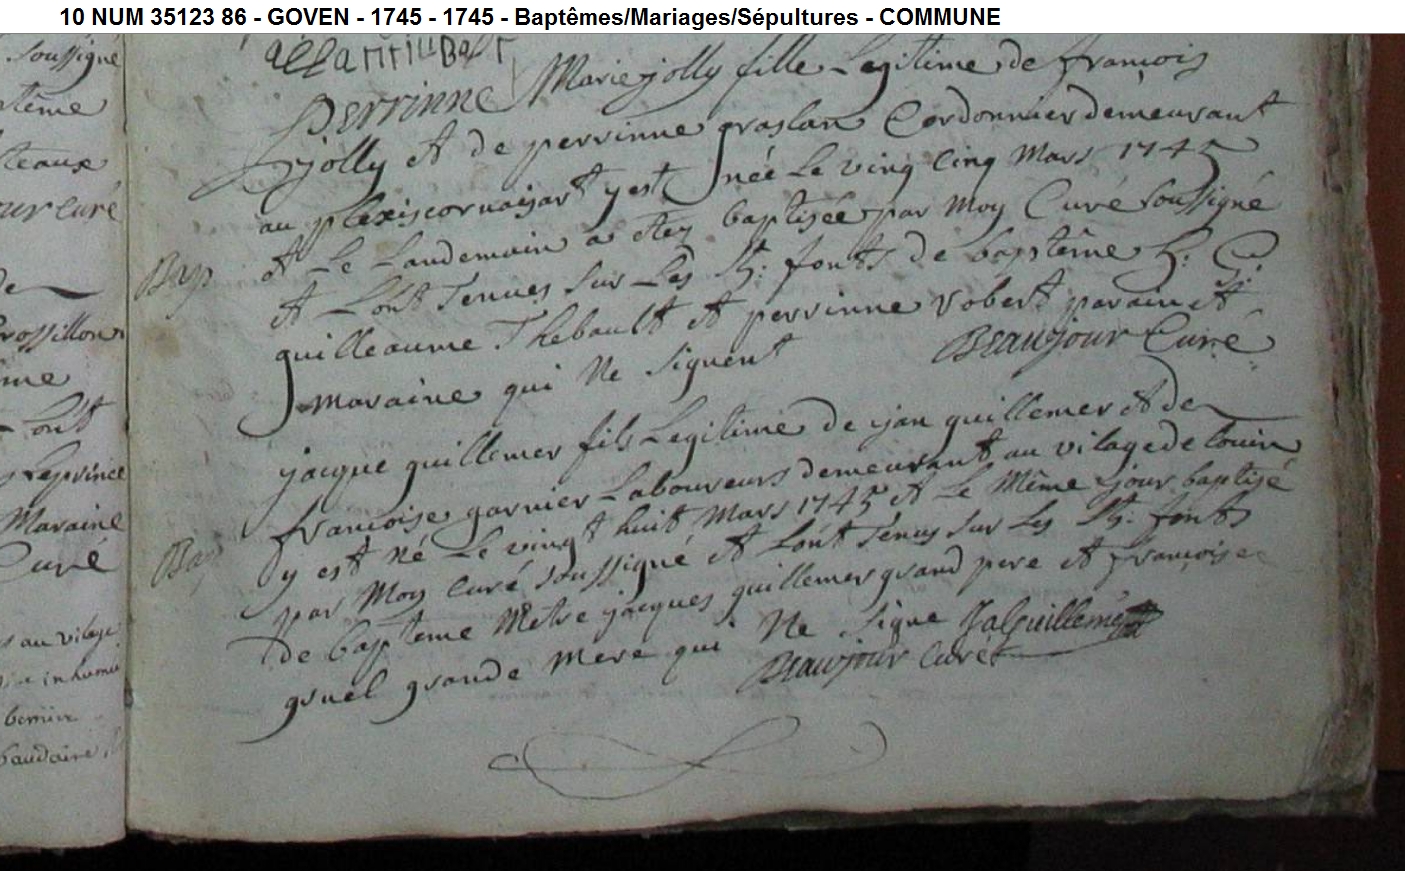 10 NUM 35123 86 - GOVEN - 1745 - 1745 - Baptêmes/Mariages/Sépultures - COMMUNE
soussigné
ptême
teaux
our curé
de
rossillon
me
Lont
Leprince
Maraine
Curé
au vilage
inhumé
bernier
baudaire
Perrinne Marie jolly fille Legitime de françois
jolly et de perrinne graslan Cordonnier demeurant
au plexiscornaisart y est née Le ving Cinq Mars 1745
Bap
et Le Landemain a etey baptisée par Moy Curé soussigné
et Lont Tenues sur Les St: fonts de baptême h. G.
guilleaume Thebault et perrinne robert parain et
maraine qui Ne signent Beaujour Curé
jacque guillemer fils Legitime de jan guillemer et de
françoise garnier Laboureurs demeurant au vilage de louin
Bap
y est né Le vingt huit Mars 1745 et Le Même jour baptisé
par Moy Curé soussigné et Lont Tenus sur Les St: fonts
de baptême Metre jacques guillemer grand pere et françoise
gruel grande Mere qui Ne signe JalGuillémer
Beaujour Curé